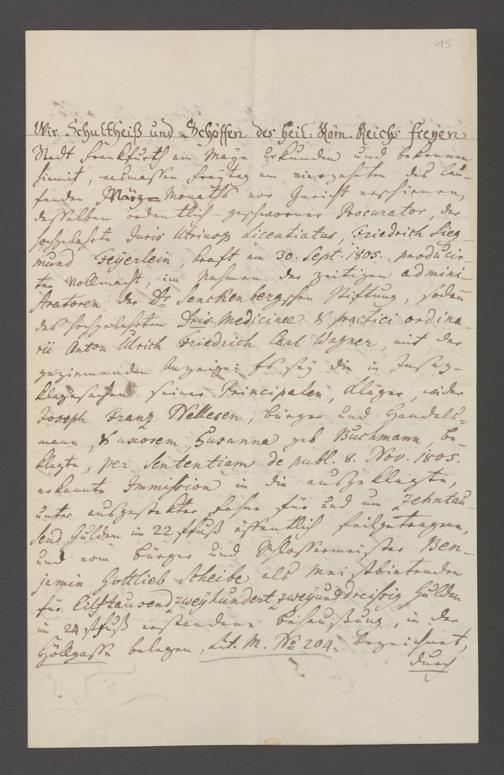 15
Wir Schultheiß und Schöffen des Heil: Röm. Reichs Freyen
Stadt Frankfurth am Mayn Urkunden und bekennen
hiemit, wasmassen Freytag am vierzehnten des lau-
fenden März-Monaths vor Gericht erschienen,
desselben ordentlich-geschworner Procurator, der
hochgelahrte Juris Utriusq Licentiatus, Friedrich Sieg-
mund Feyerlein, kraft am 30. Sept. 1805. producir-
ten Vollmacht, im Nahmen der zeitigen admini
stratoren der Dr Senckenbergschen Stiftung, sodann
des hochgelahrten Dris Medicinae & practici ordina-
rii Anton Ulrich Friedrich Carl Wagner, mit der
geziemenden Anzeige: Es sey die in Insatz-
klagesachen seiner Principalen, Kläger, wider
Joseph Franz Nellesen, Bürger und Handels-
mann, & uxorem Susanna geb Buchmann, Be-
klagte, per Sententiam de publ. 8. Nov. 1805.
erkannte Immission in die ausgeklagte,
unter ausgesteckter Fahne für und um Zehntau
send Gulden im 22 ffuß öffentlich feilgetragene,
und vom Bürger und Schlossermeister Ben-
jamin Gottlieb Scheibe als meistbietenden
für Eilftausend zweyhundert zweyunddreissig Gulden
im 24 ffuß erstandene Behaußung, in der
Höllgasse belegen, Lit. M. No 204. bezeichnet,
durch